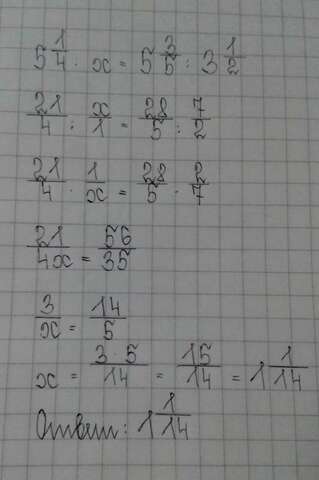 5 1/4 : x = 5 3/5 : 3 1/2
21/4 : x/1 = 28/5 : 7/2
21/4 · 1/x = 28/5 · 2/7
21/4x = 56/35
3/x = 14/5
x = 3·5/14 = 15/14 = 1 1/14
Ответ: 1 1/14